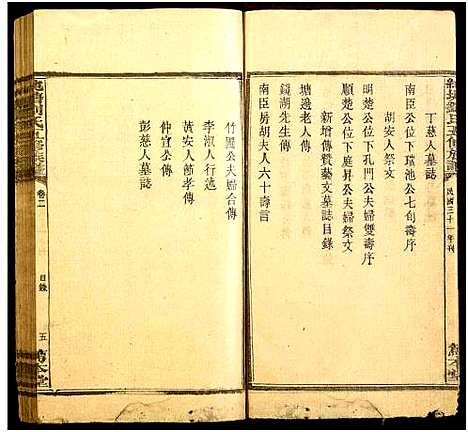 丁慈人墓誌
南臣公下瑞池公七旬壽序
胡安人祭文
明楚公位下孔門公夫婦雙壽序
順楚公位下庭昇公夫婦祭文
新增傳贊藝文墓誌目錄
塘邊老人傳
鏡湖先生傳
南臣房胡夫人六十壽言
民國三十一年刊
竹園公夫婦合傳
李淑人行述
黃安人節孝傳
仲宜公傳
彭慈人墓誌
卷二
目錄
五
萬本堂